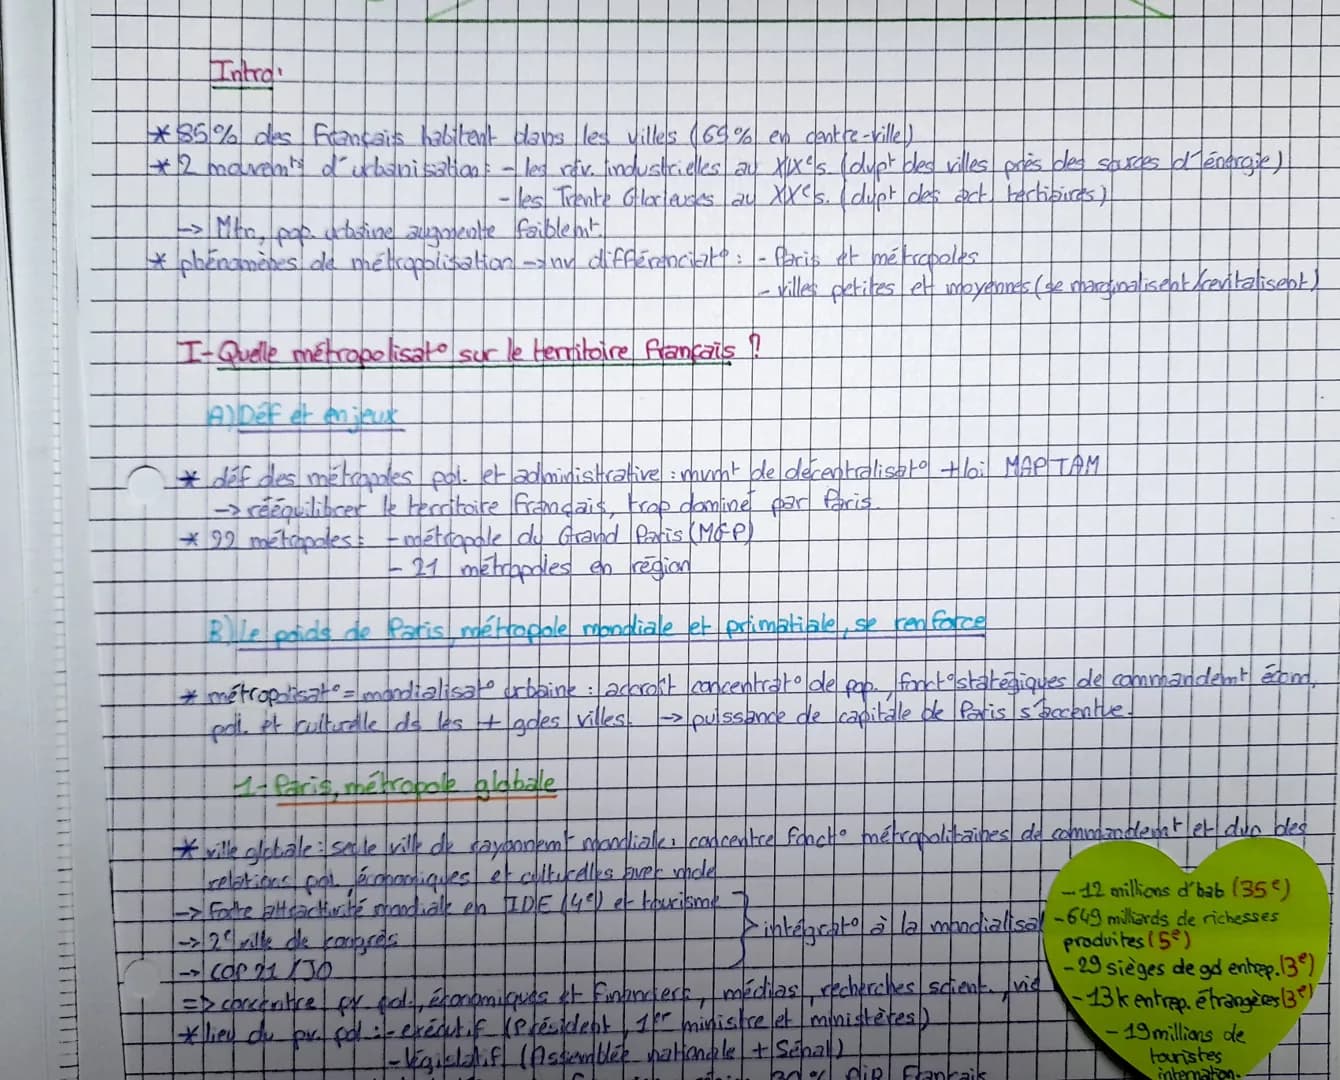 Intro:
* 85% des Français habitent dans les villes (69% en centre-ville)
* 2 mouvemts d'urbanisation: - les rév. industrielles au XIXe s. (dvpt des villes près des sources d'énergie)
- les Trente Glorieuses au XXe s. (dvpt des act. tertiaires)
-> Mtn, pop. urbaine augmente faiblemt.
* phénomènes de métropolisation -> nv différenciato : - Paris et métropoles
- villes petites et moyennes (se marginalisent/revitalisent)
I- Quelle métropolisato sur le territoire français ?
A) Déf et enjeux
* déf des métropoles pol. et administrative : mvmt de décentralisato + loi MAPTAM
-> rééquilibrer le territoire français, trop dominé par Paris.
* 22 métropoles: - métropole du Grand Paris (MGP)
- 21 métropoles en région
B) Le poids de Paris, métropole mondiale et primatiale, se renforce
* métropolisato = mondialisato urbaine : accroît concentrato de pop., fonctos stratégiques de commandemt écom,
pol. et culturelle ds les + gdes villes. -> puissance de capitale de Paris s'accentue.
1- Paris, métropole globale
* ville globale : seule ville de rayonnemt mondiale, concentre foncto métropolitaines de commandemt et des
relations pol, économiques et culturelles avec mde
-> Forte attractivité mondiale en IDE (4e) et tourisme
-> 2e ville de congrès
intégrato à la mondialisa
-> COP 21 / JO
=> concentre pv pol, économiques et financiers, médias, recherches scient., vie
* lieu du pv. pol : - exécutif (Président, 1er ministre et ministères)
- législatif (Assemblée nationale + Sénat)
Français
- 12 millions d'hab (35e)
- 649 milliards de richesses
produites (5e)
- 29 sièges de gd entrep. (3e)
- 13k entrep. étrangères (3e)
- 19 millions de
touristes
internation.